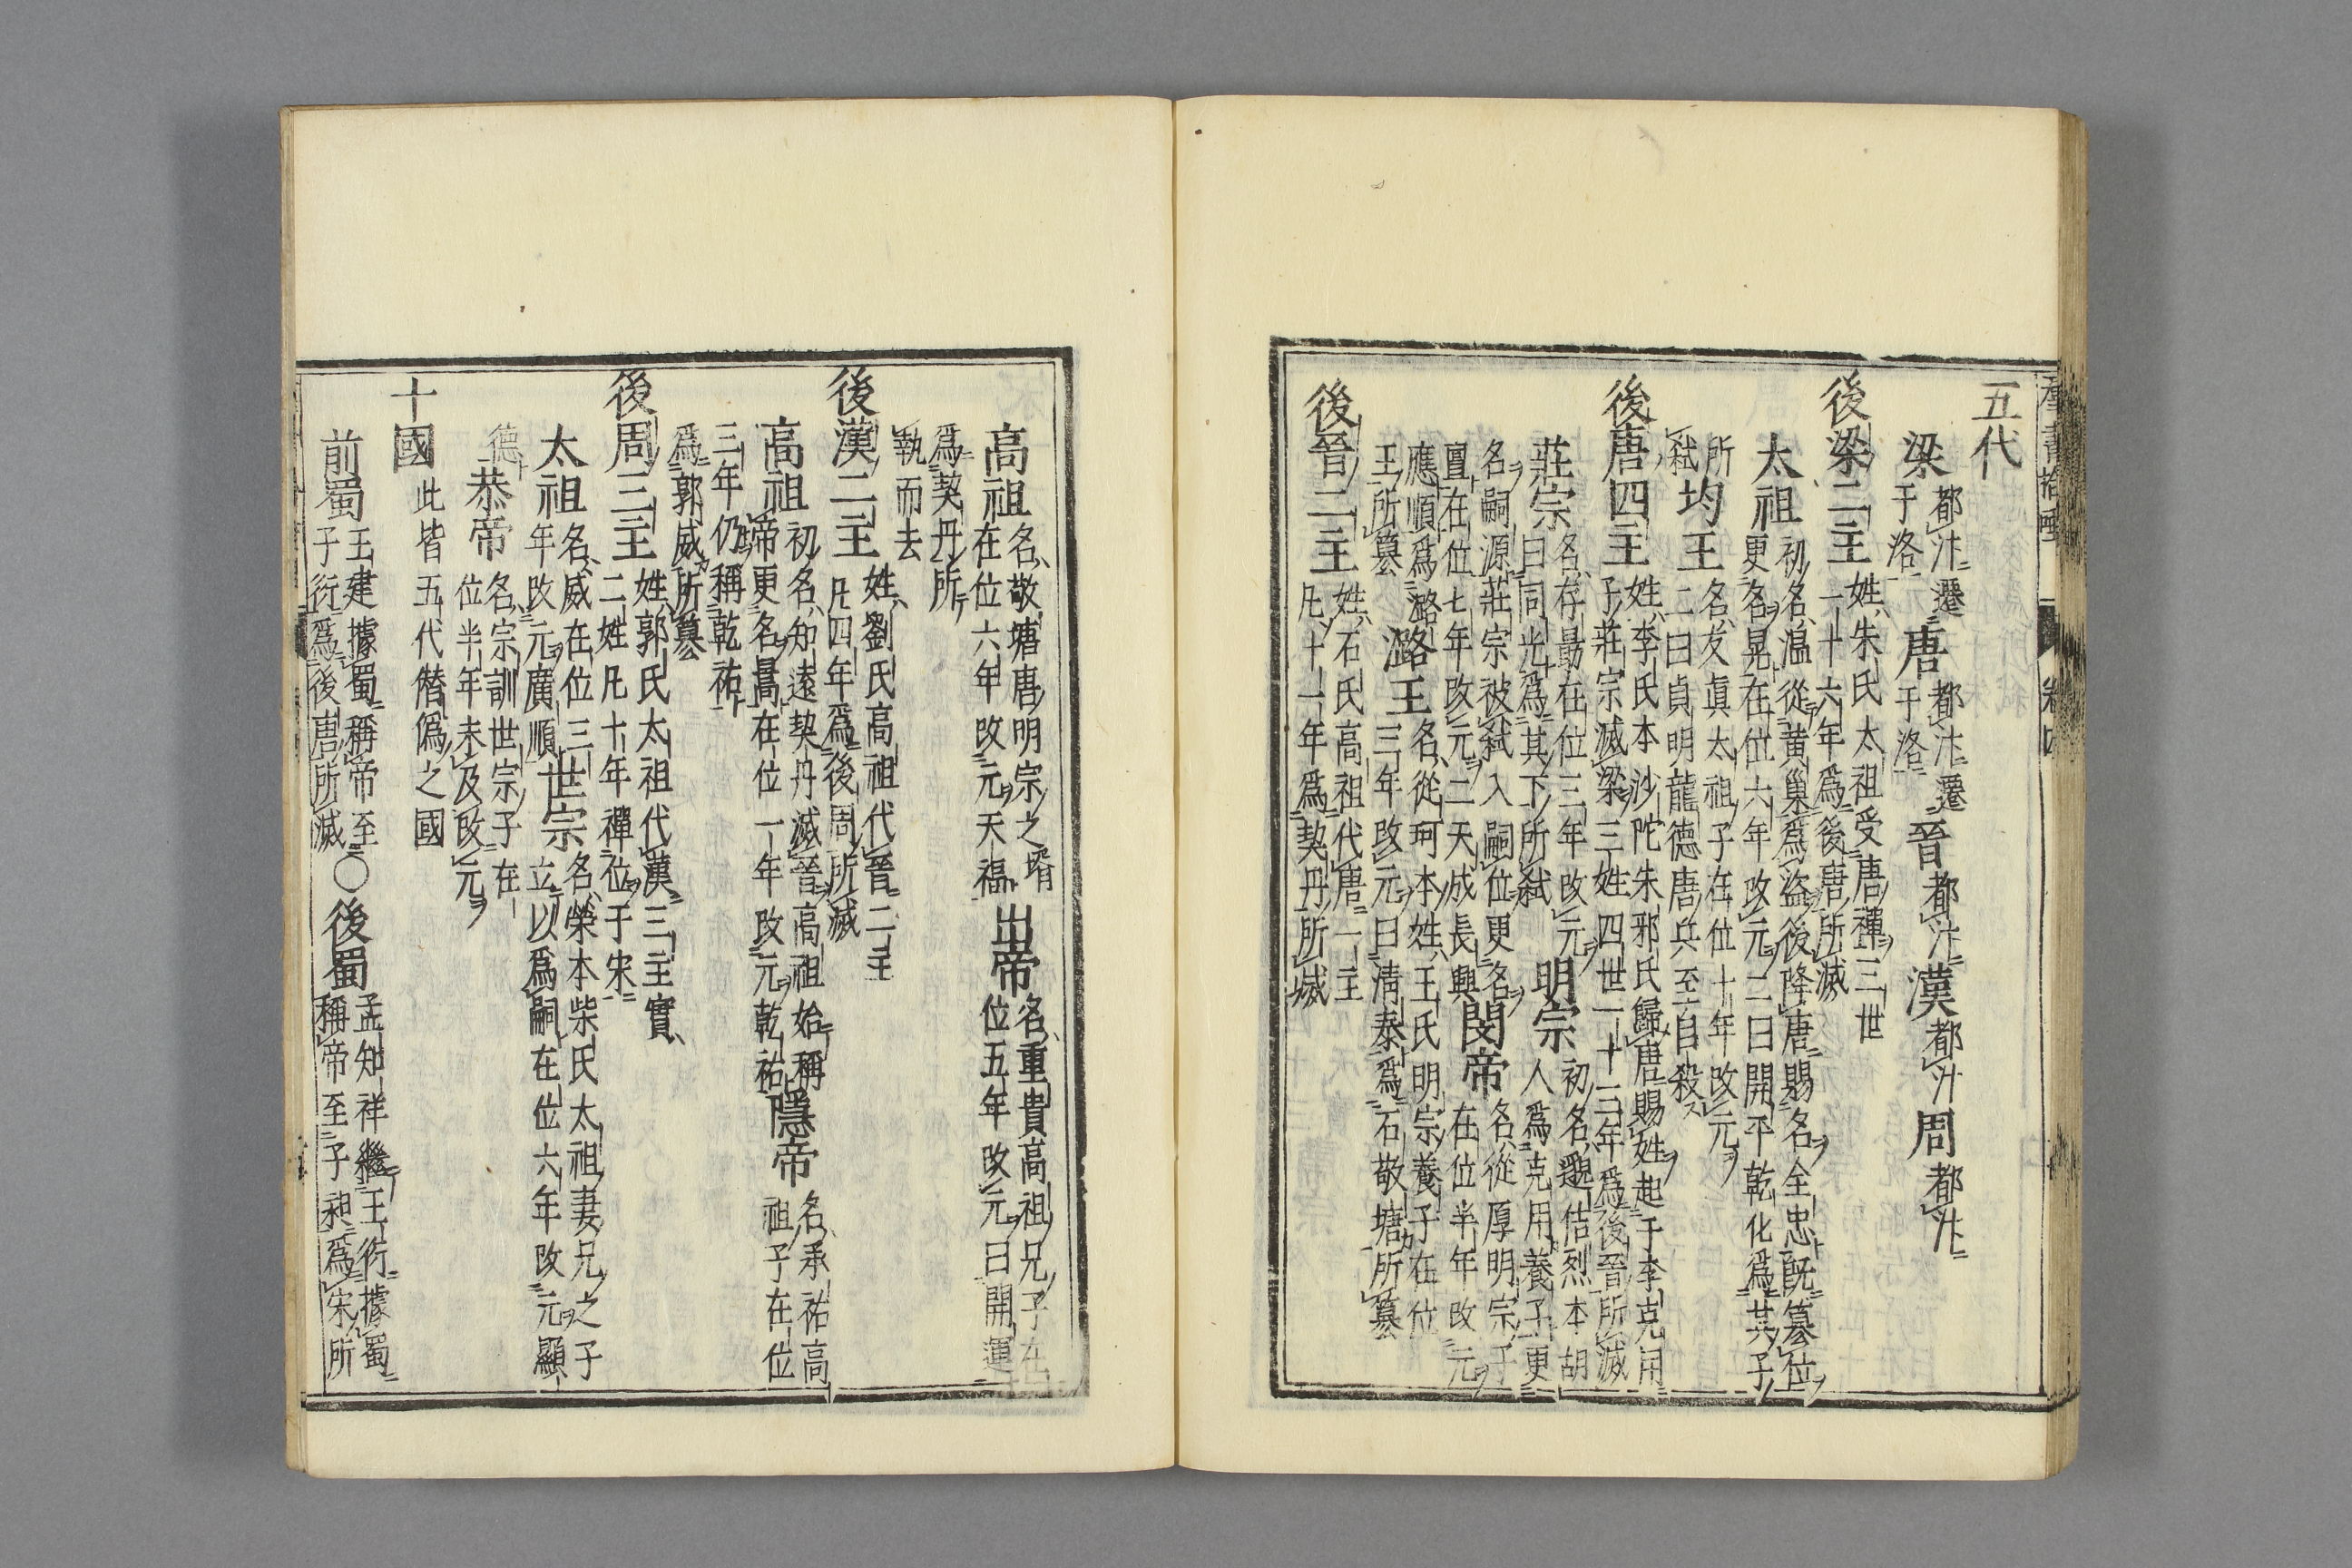 五代
梁都汴遷于洛 唐都汴遷于洛 晉都汴 漢都汴 周都汴
後梁二主姓朱氏太祖受唐禪二世一十六年爲後唐所滅
太祖初名温從黄巢爲盜後降唐賜名全忠既簒位更名晃在位六年改元二曰開平乾化爲其子
所弑 均王名友眞太祖子在位十年改元二曰貞明龍德唐兵至自殺
後唐四主姓李氏本沙陀朱邪氏歸唐賜姓起于李克用子莊宗滅梁三姓四世一十三年爲後晉所滅
莊宗名存勗在位三年改元曰同光爲其下所弑 明宗初名邈佶烈本胡人爲克用養子更
名嗣源莊宗被弑入嗣位更名亶在位七年改元二天成長興 閔帝名從厚明宗子在位半年改元
應順爲潞王所簒 潞王名從珂本姓王氏明宗養子在位三年改元曰清泰爲石敬塘所簒
後晉二主姓石氏高祖代唐一主凡十一年爲契丹所滅
高祖名敬塘唐明宗之壻在位六年改元天福 出帝名重貴高祖兄子在位五年改元曰開運
爲契丹所執而去
後漢二主姓劉氏高祖代晉二主凡四年爲後周所滅
高祖初名知遠契丹滅晉高祖始稱帝更名暠在位一年改元乾祐 隱帝名承祐高祖子在位
三年仍稱乾祐爲郭威所簒
後周三主姓郭氏太祖代漢三主實二姓凡十年禪位于宋
太祖名威在位三年改元廣順 世宗名榮本柴氏太祖妻兄之子立以爲嗣在位六年改元顯
德 恭帝名宗訓世宗子在位半年未及改元
十國此皆五代僭僞之國
前蜀王建據蜀稱帝至子衍爲後唐所滅〇後蜀孟知祥繼王衍據蜀稱帝至子昶爲宋所